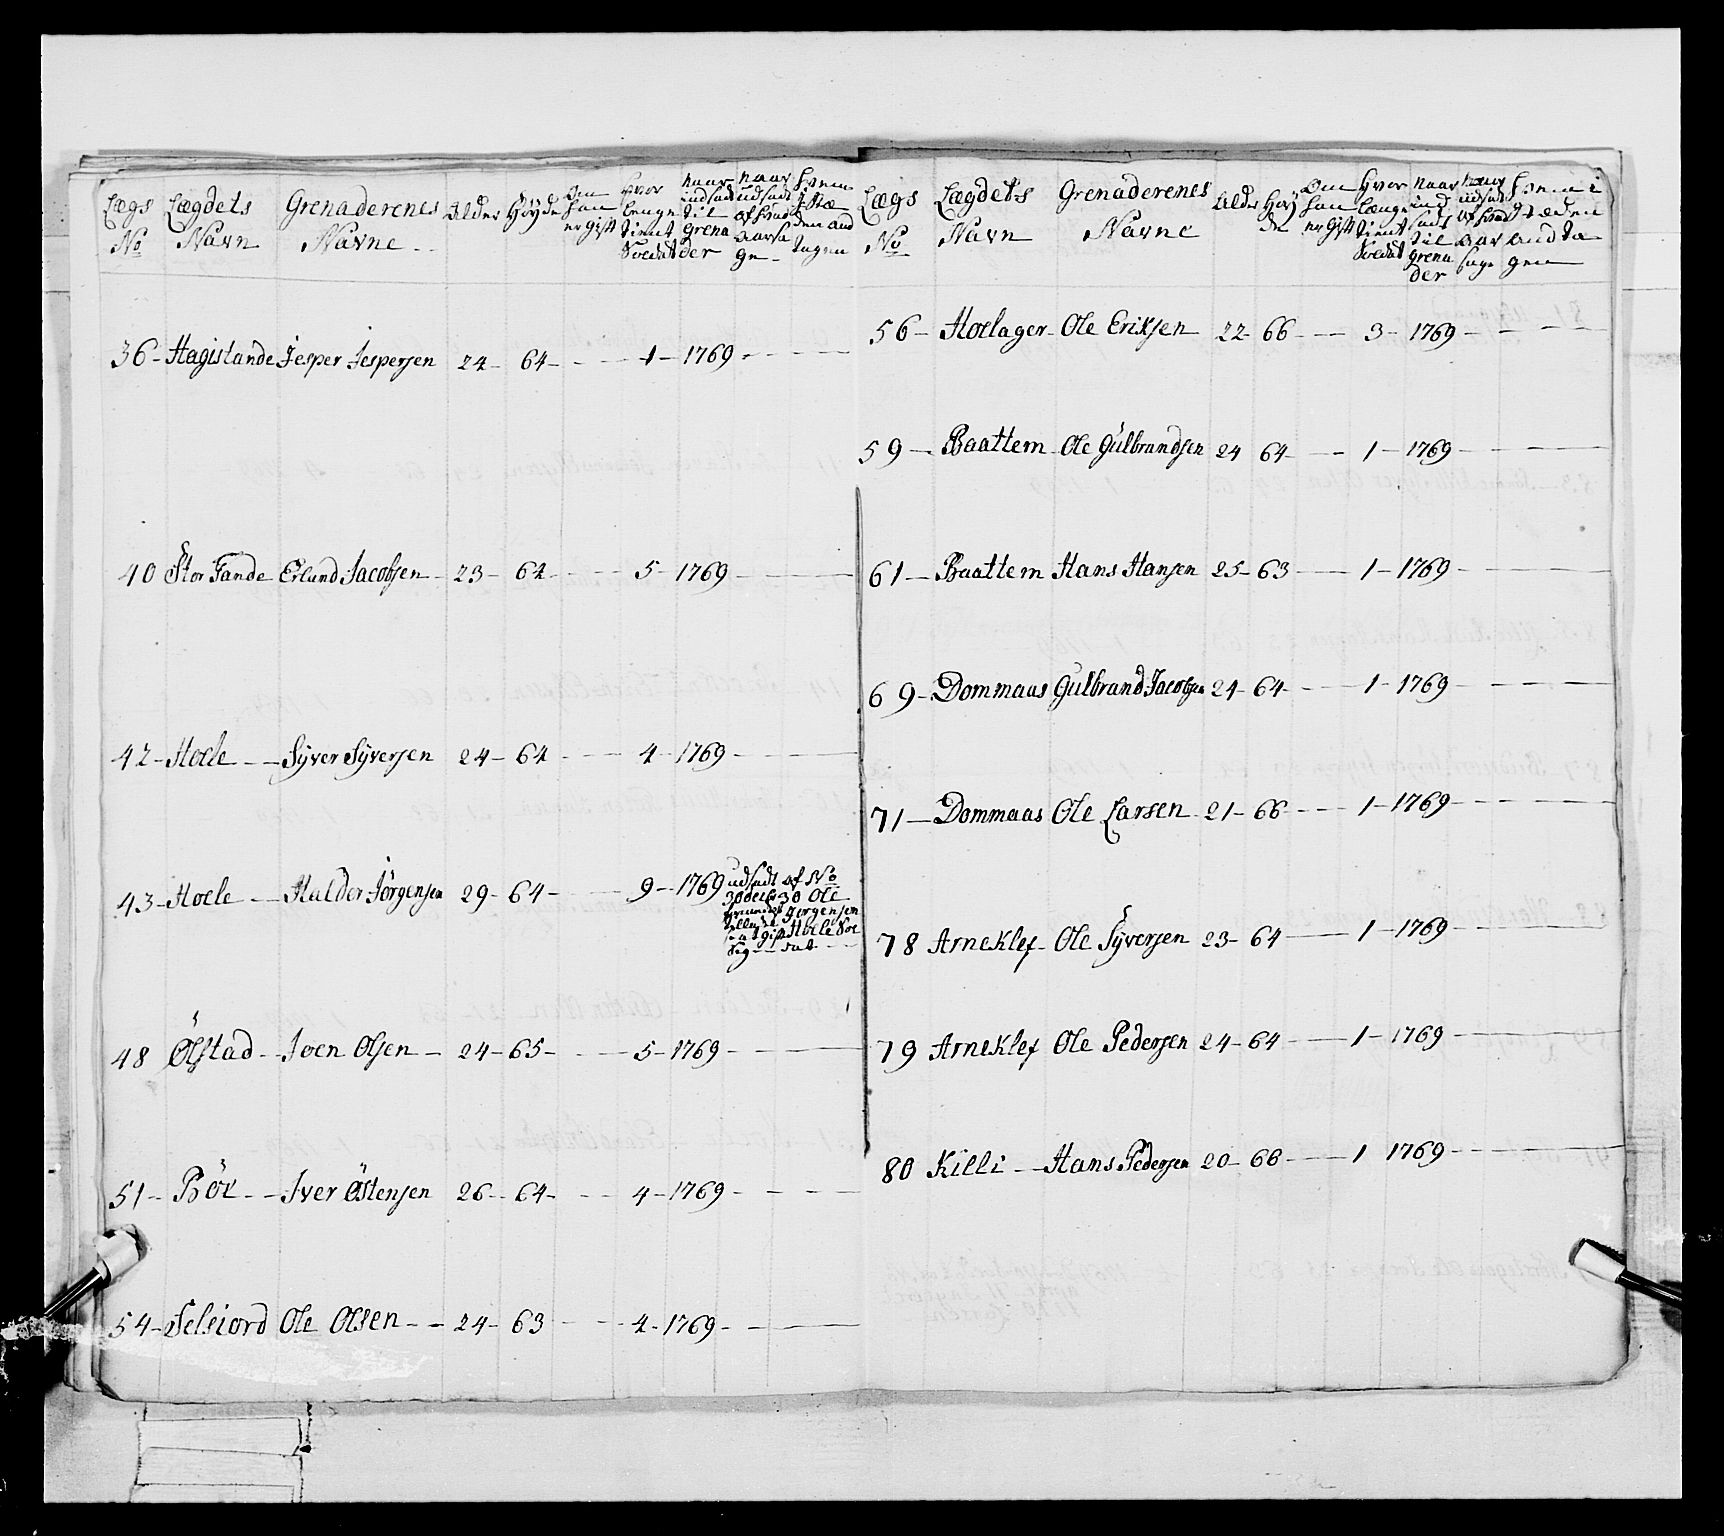 Lægs No
Lægdets Navn
Grenaderenes Navne
Alder
Höyde
Om han er gift
Hvor lenge tient Soldat
naar indsadt til Grenader
naar udsadt af hvad aarsage
hvem i stæden andtagen
36 - Hagistande Jesper Jespersen 24 - 64 - 1 - 1769
40 Stor Fande Erlund Jacobsen 23 - 64 - 5 - 1769
42 - Hoele - Syver Syversen 24 - 64 - 4 - 1769
43 - Hoele - Halder Jörgensen 29 - 64 - 9 - 1769 udsadt af No
30 Ole
Jörgensen
gift Hoele
48 Ölstad - Joen Olsen - 24 - 65 - 5 - 1769
51 - Böe - Iver Östensen 26 - 64 - 4 - 1769
54 - Selsiord Ole Olsen - 24 - 63 - 4 - 1769
Lægs No
Lægdets Navn
Grenaderenes Navne
Alder
Höyden
Om han er gift
Hvor længe tient Soldat
naar indsadt til Grenader
naar udsadt af hvad aarsage
hvem i stæden andtagen
56 - Hoelager - Ole Eriksen 22 - 66 - 3 - 1769
59 - Baattem Ole Gulbrandsen 24 64 - 1 - 1769
61 - Baattem Hans Hansen 25 - 63 - 1 - 1769
69 - Dommaas Gulbrand Jacobsen 24 - 64 - 1 - 1769
71 - Dommaas Ole Larsen 21 - 66 - 1 - 1769
78 Arneklef - Ole Syversen 23 - 64 - 1 - 1769
79 Arneklef Ole Pedersen 24 - 64 - 1 - 1769
80 Killi - Hans Pedersen 20 - 66 - 1 1769